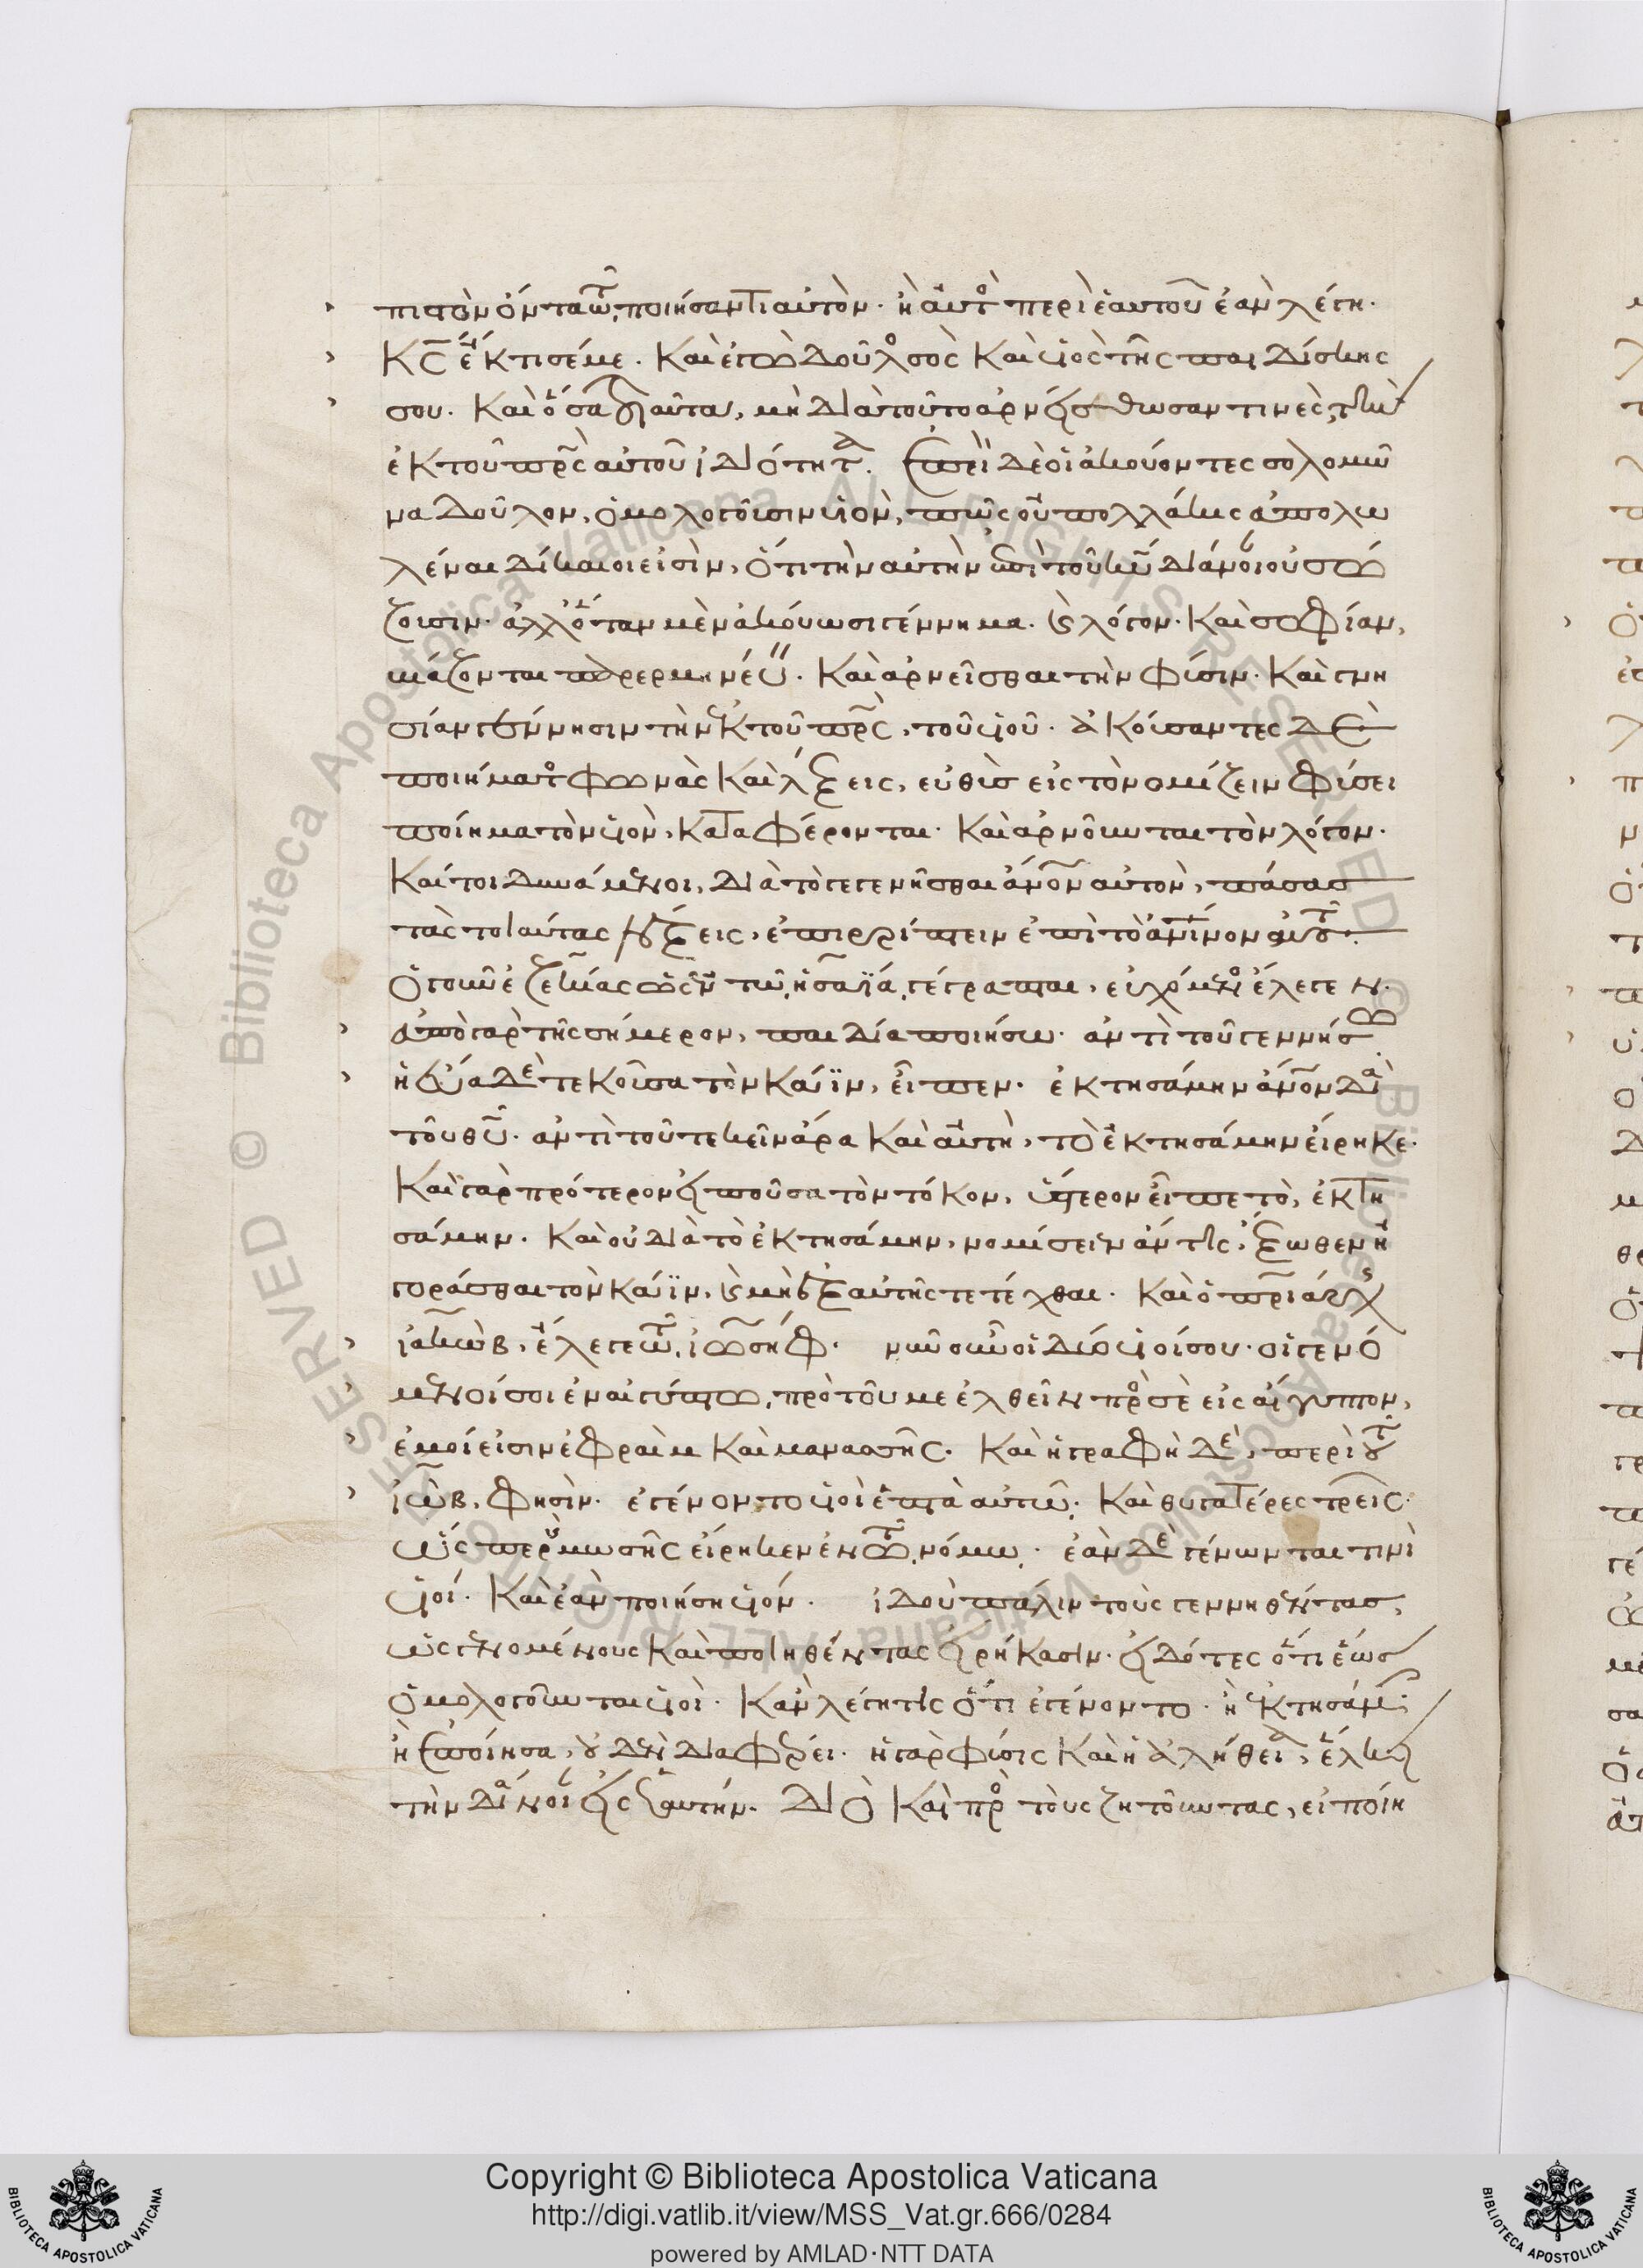 πιστὸν ὄντα τῶ ποιήσαντι αὐτὸν· ἢ αὐτὸς περὶ ἑαυτοῦ ἐὰν λέγη·
κς ἔκτισέ με. καὶ ἐγὼ δοῦλος σὸς καὶ υἱὸς τῆς παιδίσκης
σου. καὶ ὅσα τοιαῦτα, μὴ διὰ τοῦτο ἀρνείσθωσάν τινες, τὴν
ἐκ τοῦ πρς αὐτοῦ ἰδιότητα. ἐπεὶ δὲ οἱ ἀκούοντες σολομῶν
τα δοῦλον, ὁμολογοῦσιν υἱὸν, πῶς οὐ πολλάκις ἀπολω
λέναι δίκαιοι εἰσὶν, ὅτι τὴν αὐτὴν ἐπὶ τοῦ κυ διάνοιαν οὐ σώ
ζουσιν· ἀλλ' ὅταν μὲν ἀκούωσι γέννημα. καὶ λόγον· καὶ σοφίαν,
βιάζονται παρερμηνεύειν. καὶ ἀρνεῖσθαι τὴν φύσιν. καὶ γνη
σίαν γέννησιν τὴν ἐκ τοῦ πρς, τοῦ υἱοῦ. ἀκούσαντες δὲ
ποιήματος φωνὰς καὶ λέξεις, εὐθὺς εἰς τὸ νομίζειν φύσει
ποίημα τὸν υἱὸν, καταφέρονται. καὶ ἀρνοῦνται τὸν λόγον.
καίτοι δυνάμενοι, διὰ τὸ γεγενῆσθαι ἄνον αὐτὸν, πάσας
τὰς τοιαύτας λέξεις, ἐπιρρίπτειν ἐπὶ τὸ ἀνθρώπινον αὐτοῦ.
ὁ γοῦν ἐζεκίας ὡς ἐν τῶ ἡσαΐα γέγραπται, εὐχόμενος ἔλεγεν·
ἀπὸ γὰρ τῆς σήμερον, παιδία ποιήσω· ἀντὶ τοῦ γεννήσω.
ἡ εὔα δὲ τεκοῦσα τὸν κάϊν, εἶπεν· ἐκτησάμην ἄνον διὰ
τοῦ θυ. ἀντὶ τοῦ τεκεῖν ἄρα καὶ αὐτὴ, τὸ ἐκτησάμην εἴρηκε·
καὶ γὰρ πρότερον εἰποῦσα τὸν τόκον, ὕστερον εἶπε τὸ, ἐκτη
σάμην. καὶ οὐ διὰ τὸ ἐκτησάμην, νομίσειεν ἄν τις, ἔξωθεν ἠ
γοράσθαι τὸν κάϊν, καὶ μὴ ἐξ αὐτῆς τετέχθαι. καὶ ὁ πριάρχης
ἰακὼβ, ἔλεγε τῶ ἰωσήφ· νῦν οὖν οἱ δύο υἱοί σου· οἱ γενό
μενοί σοι ἐν αἰγύπτω, πρὸ τοῦ με ἐλθεῖν πρὸς σὲ εἰς αἴγυπτον,
ἐμοί εἰσιν ἐφραὶμ καὶ μανασσῆς. καὶ ἡ γραφὴ δὲ, περὶ τοῦ
ἰὼβ, φησὶν· ἐγένοντο υἱοὶ ἑπτὰ αὐτῶ. καὶ θυγατέρες τρεῖς·
ὥσπερ καὶ μωσῆς εἴρηκεν ἐν τῶ νόμω· ἐὰν δὲ γένωνταί τινι
υἱοί. καὶ ἐὰν ποιήση υἱόν. ἰδοὺ πάλιν τοὺς γεννηθέντας,
ὡς γενομένους καὶ ποιηθέντας εἰρήκασιν· εἰδότες ὅτι ἕως
ὁμολογοῦνται υἱοὶ· κἂν λέγη τις ὅτι ἐγένοντο· ἢ ἐκτησάμην·
ἢ ἐποίησα, οὐδὲν διαφέρει· ἡ γὰρ φύσις καὶ ἡ ἀλήθεια, ἕλκει
τὴν διάνοιαν εἰς ἑαυτήν. διὸ καὶ πρὸς τοὺς ζητοῦντας, εἰ ποίη
Copyright © Biblioteca Apostolica Vaticana
http://digi.vatlib.it/view/MSS_Vat.gr.666/0284
powered by AMLAD·NTT DATA